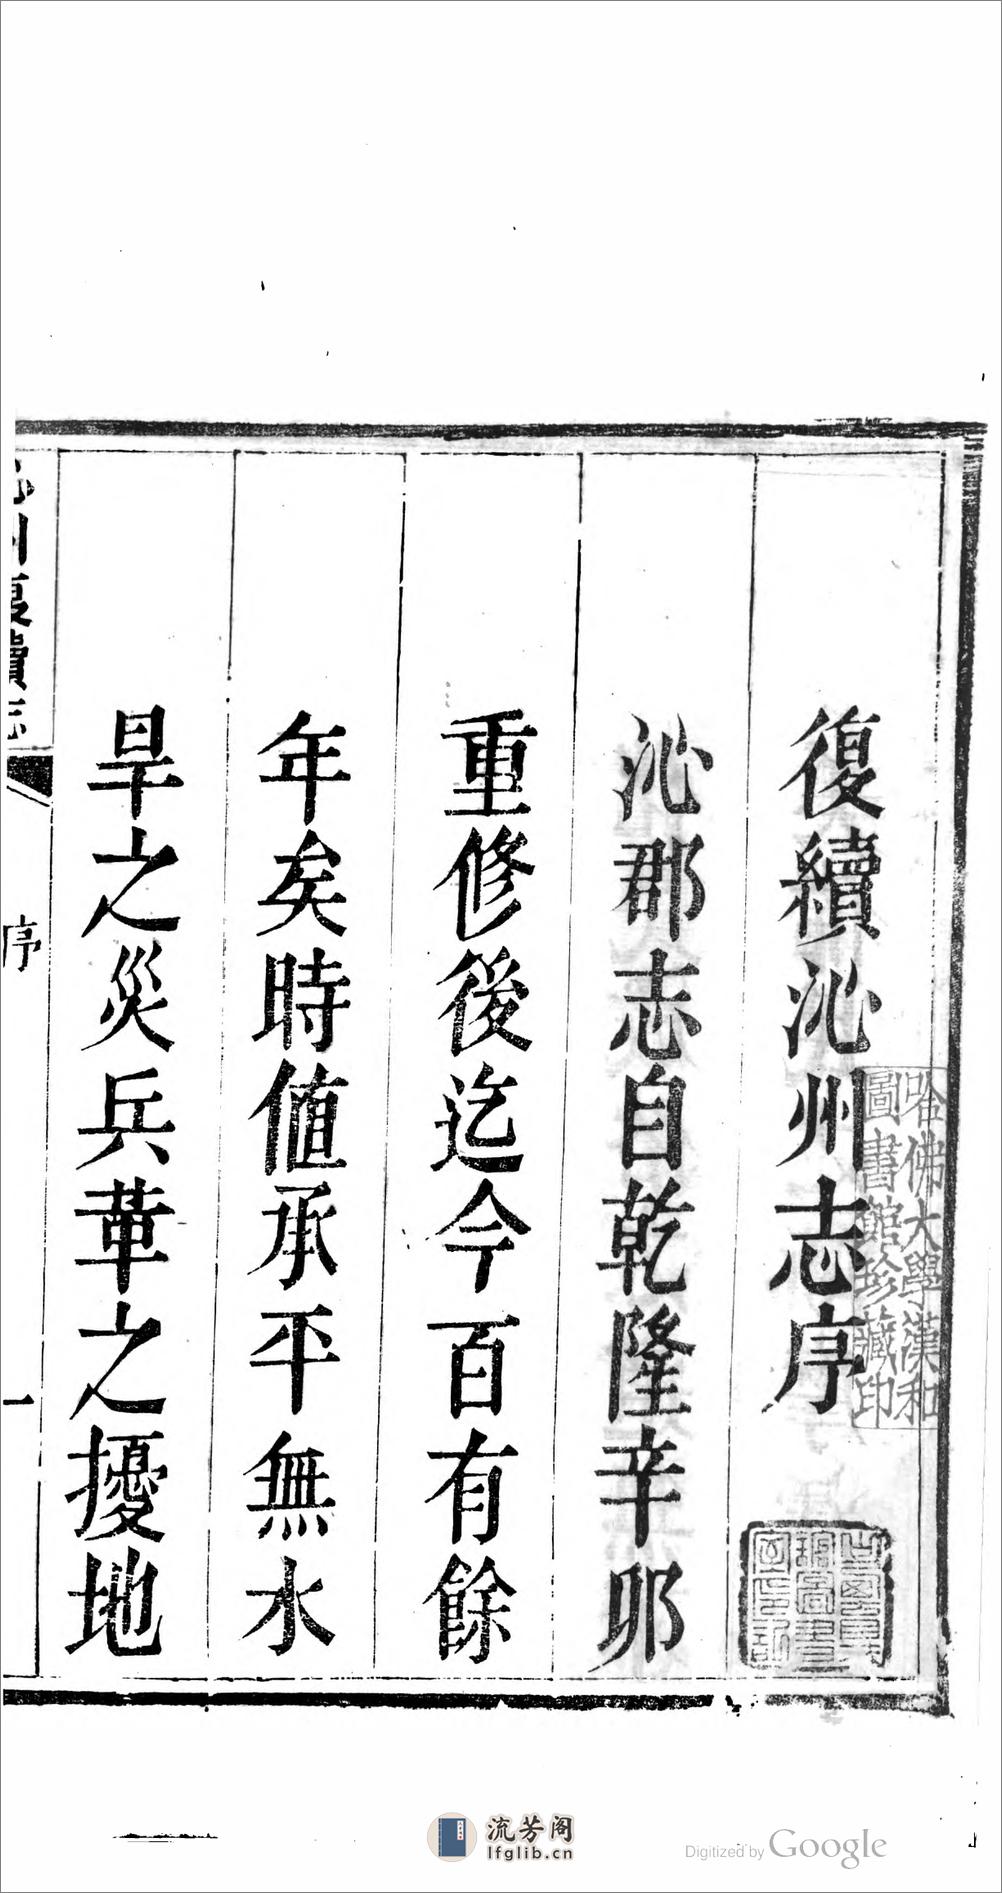 復續沁州志序
沁郡志自乾隆辛卯
重修後迄今百有餘
年矣時値承平無水
旱之災兵革之擾地
沁州復續志
序
一
哈佛大學漢和
圖書館珍藏印
流芳阁
lfglib.cn
Digitized by Google